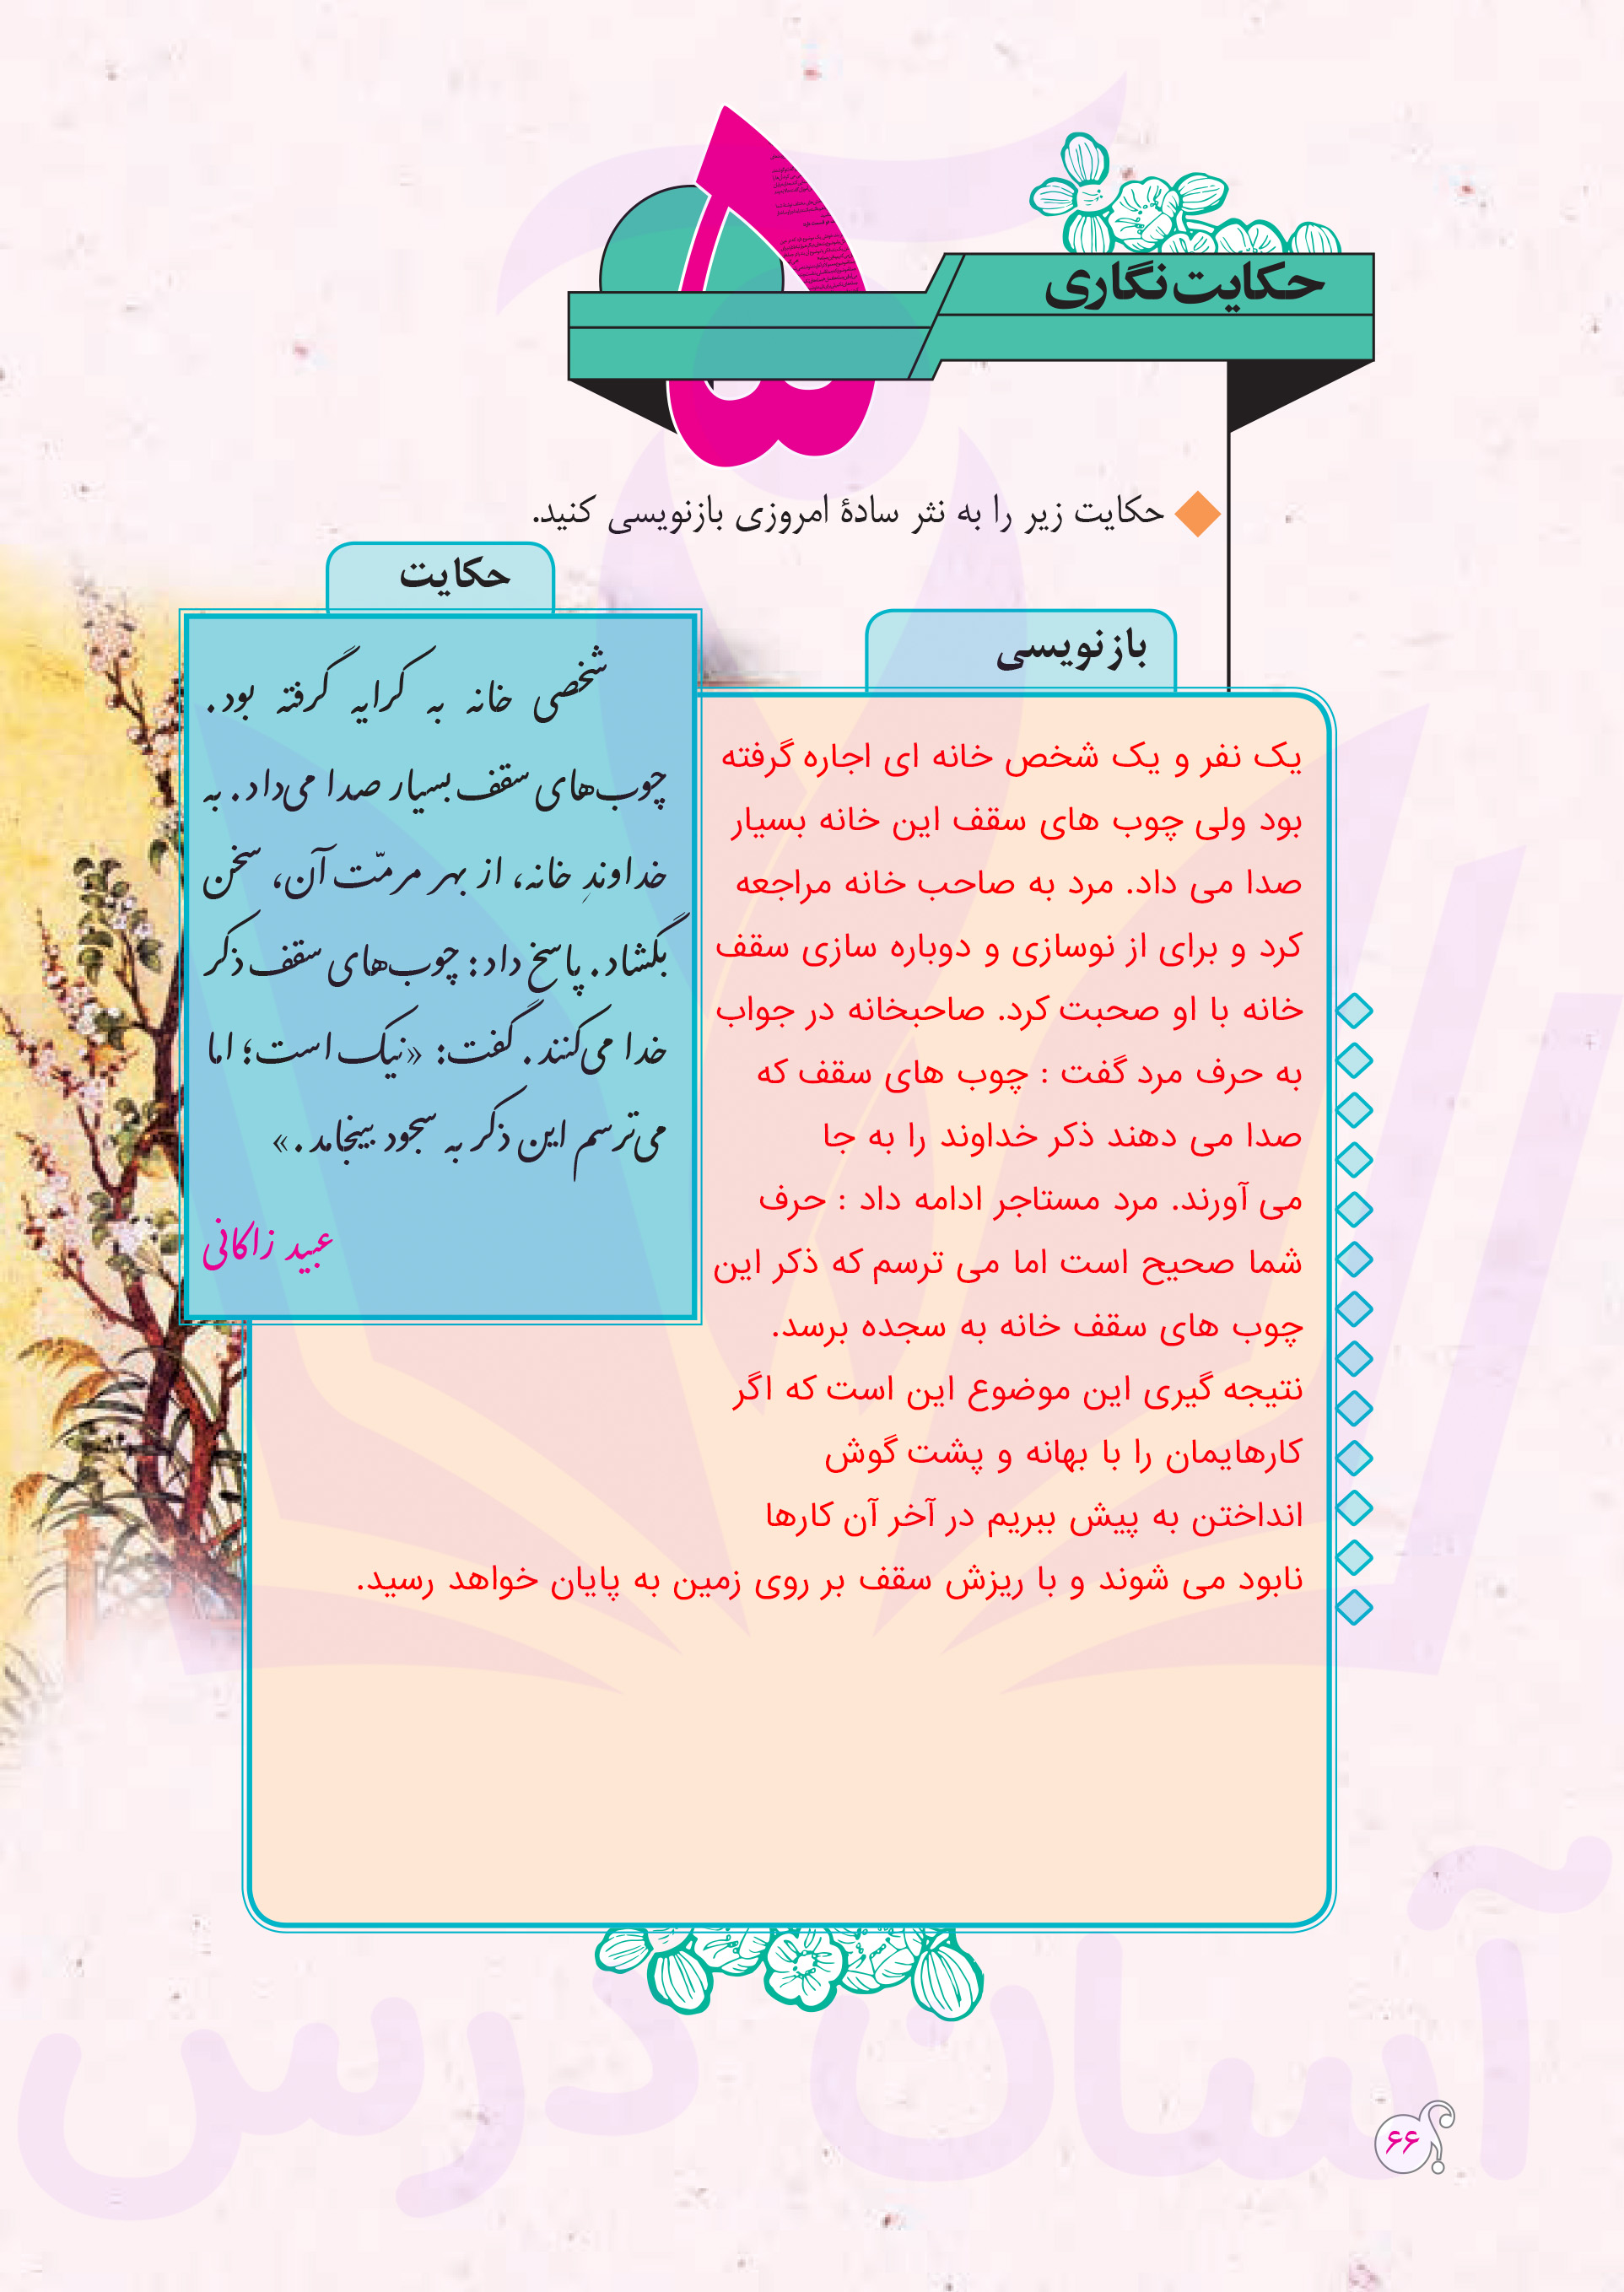 حکایت‌نگاری
۵
حکایت زیر را به نثر سادهٔ امروزی بازنویسی کنید.
حکایت
شخصی خانه به کرایه گرفته بود.
چوب‌های سقف بسیار صدا می‌داد. به
خداوندِ خانه، از بهر مرمّت آن، سخن
بگشاد. پاسخ داد: چوب‌های سقف ذکر
خدا می‌کنند. گفت: «نیک است؛ اما
می‌ترسم این ذکر به سجود بینجامد.»
عبید زاکانی
بازنویسی
یک نفر و یک شخص خانه ای اجاره گرفته
بود ولی چوب های سقف این خانه بسیار
صدا می داد. مرد به صاحب خانه مراجعه
کرد و برای از نوسازی و دوباره سازی سقف
خانه با او صحبت کرد. صاحبخانه در جواب
به حرف مرد گفت : چوب های سقف که
صدا می دهند ذکر خداوند را به جا
می آورند. مرد مستاجر ادامه داد : حرف
شما صحیح است اما می ترسم که ذکر این
چوب های سقف خانه به سجده برسد.
نتیجه گیری این موضوع این است که اگر
کارهایمان را با بهانه و پشت گوش
انداختن به پیش ببریم در آخر آن کارها
نابود می شوند و با ریزش سقف بر روی زمین به پایان خواهد رسید.
آسان درس
۶۶